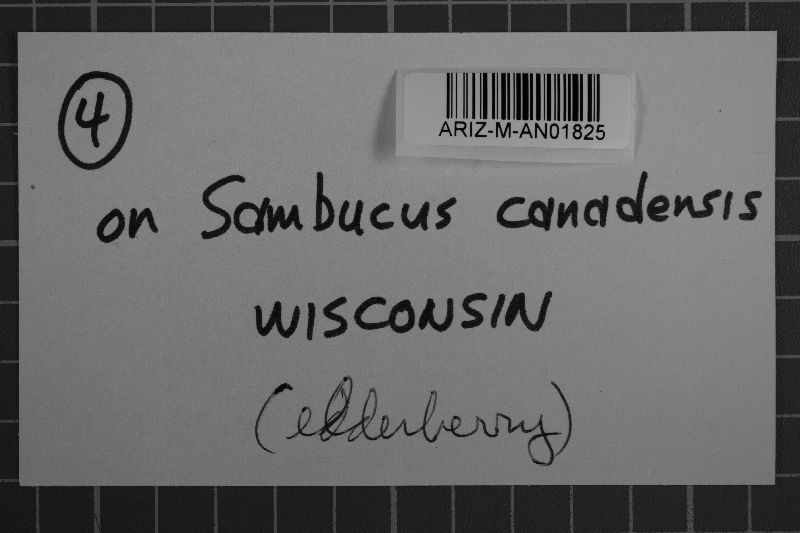 4
ARIZ-M-AN01825
on Sambucus canadensis
WISCONSIN
(elderberry)